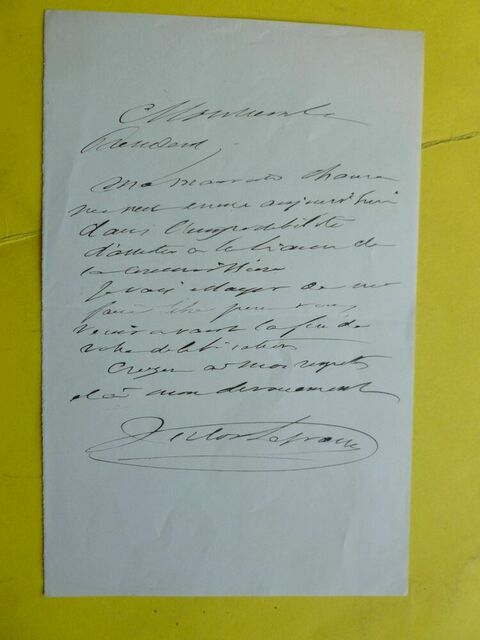 Monsieur le
Président,
Ma mauvaise chance
me met encore aujourd'hui
dans l'impossibilité
d'assister à la réunion de
la commission
Je vais essayer de me
faire libre pour
venir avant la fin de
votre délibération
Croyez à mes regrets
et à mon dévouement